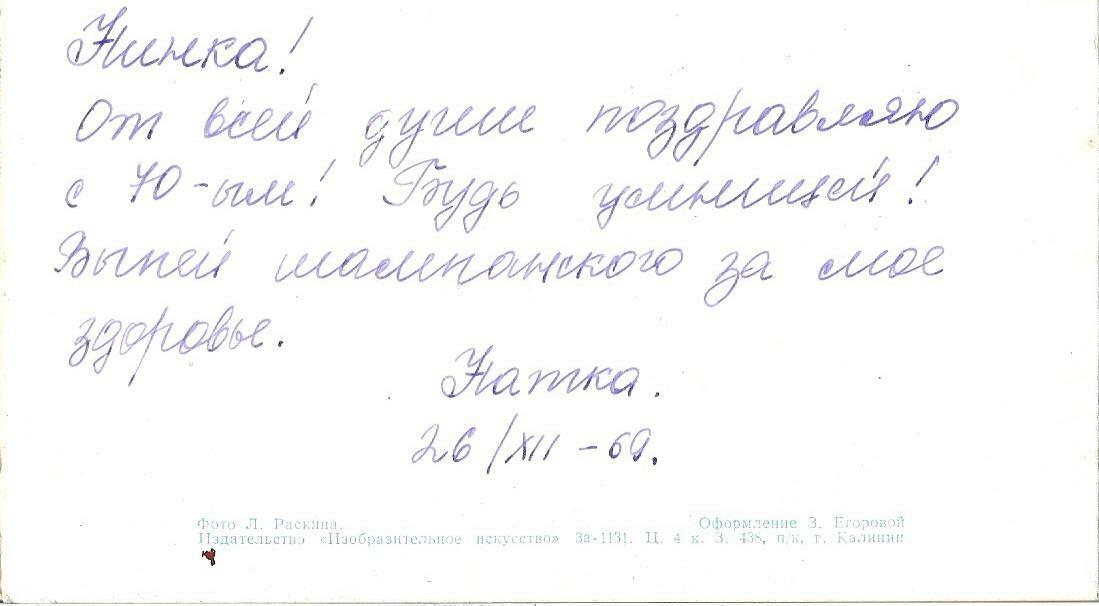 Нинка!
От всей души поздравляю
с 70-ым! Будь умницей!
Выпей шампанского за мое
здоровье.
Натка.
26/XII-69.
Фото Л. Раскина. Оформление З. Егоровой
Издательство «Изобразительное искусство» 3а-1131. Ц. 4 к. З. 438, п/к, г. Калинин